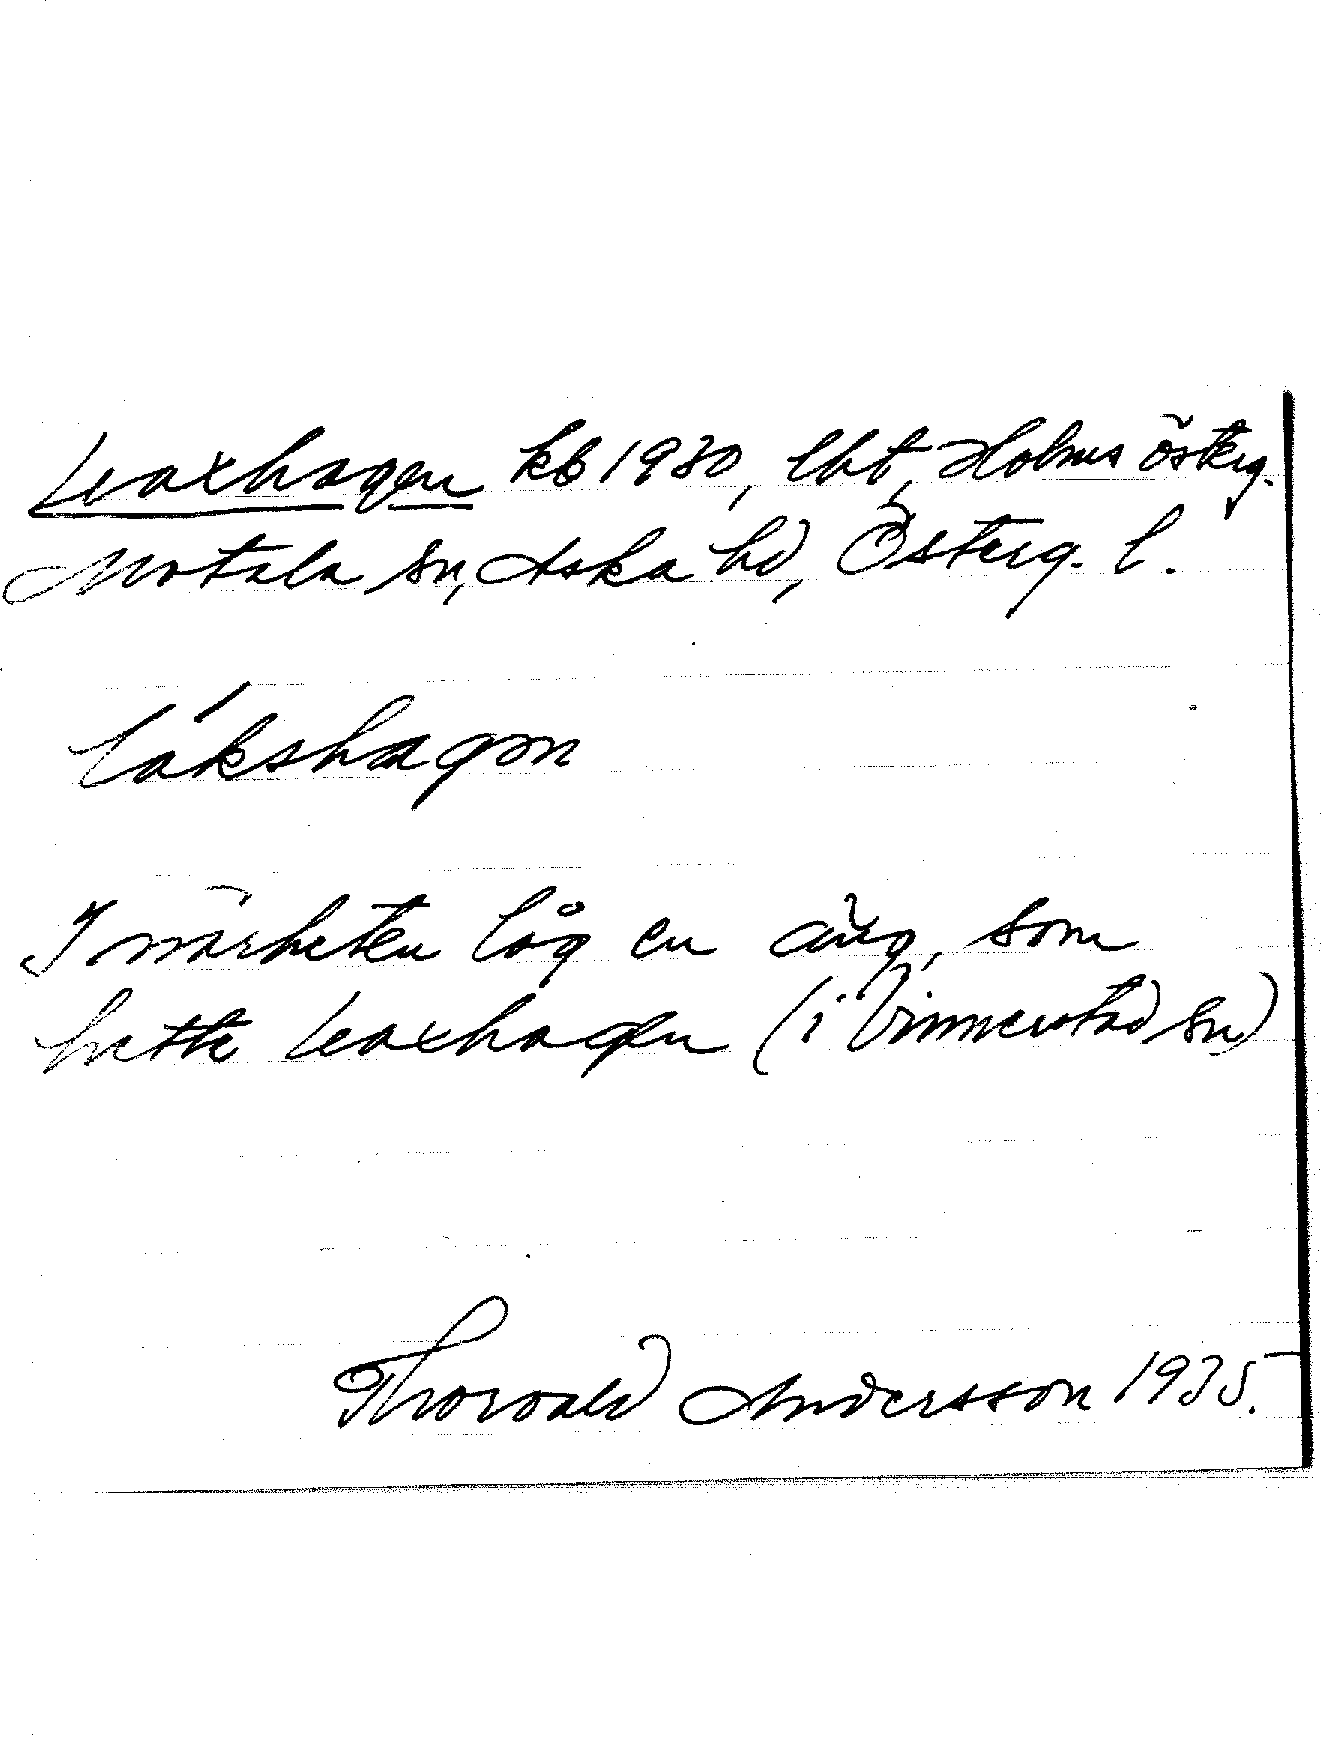 Laxhagen kb 1930, lht, Holms Österg.
Motala sn, Aska hd, Österg. l.
lákshagon
I närheten låg en äng, som
hette Laxhagen (i Vinnerstad sn)
Thorvald Andersson 1935.